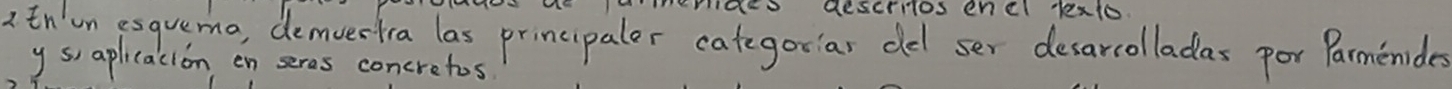 descritos en el texto.
2 En un esquema, demuestra las principales categorías del ser desarrolladas por Parménides
y su aplicación en seres concretos.